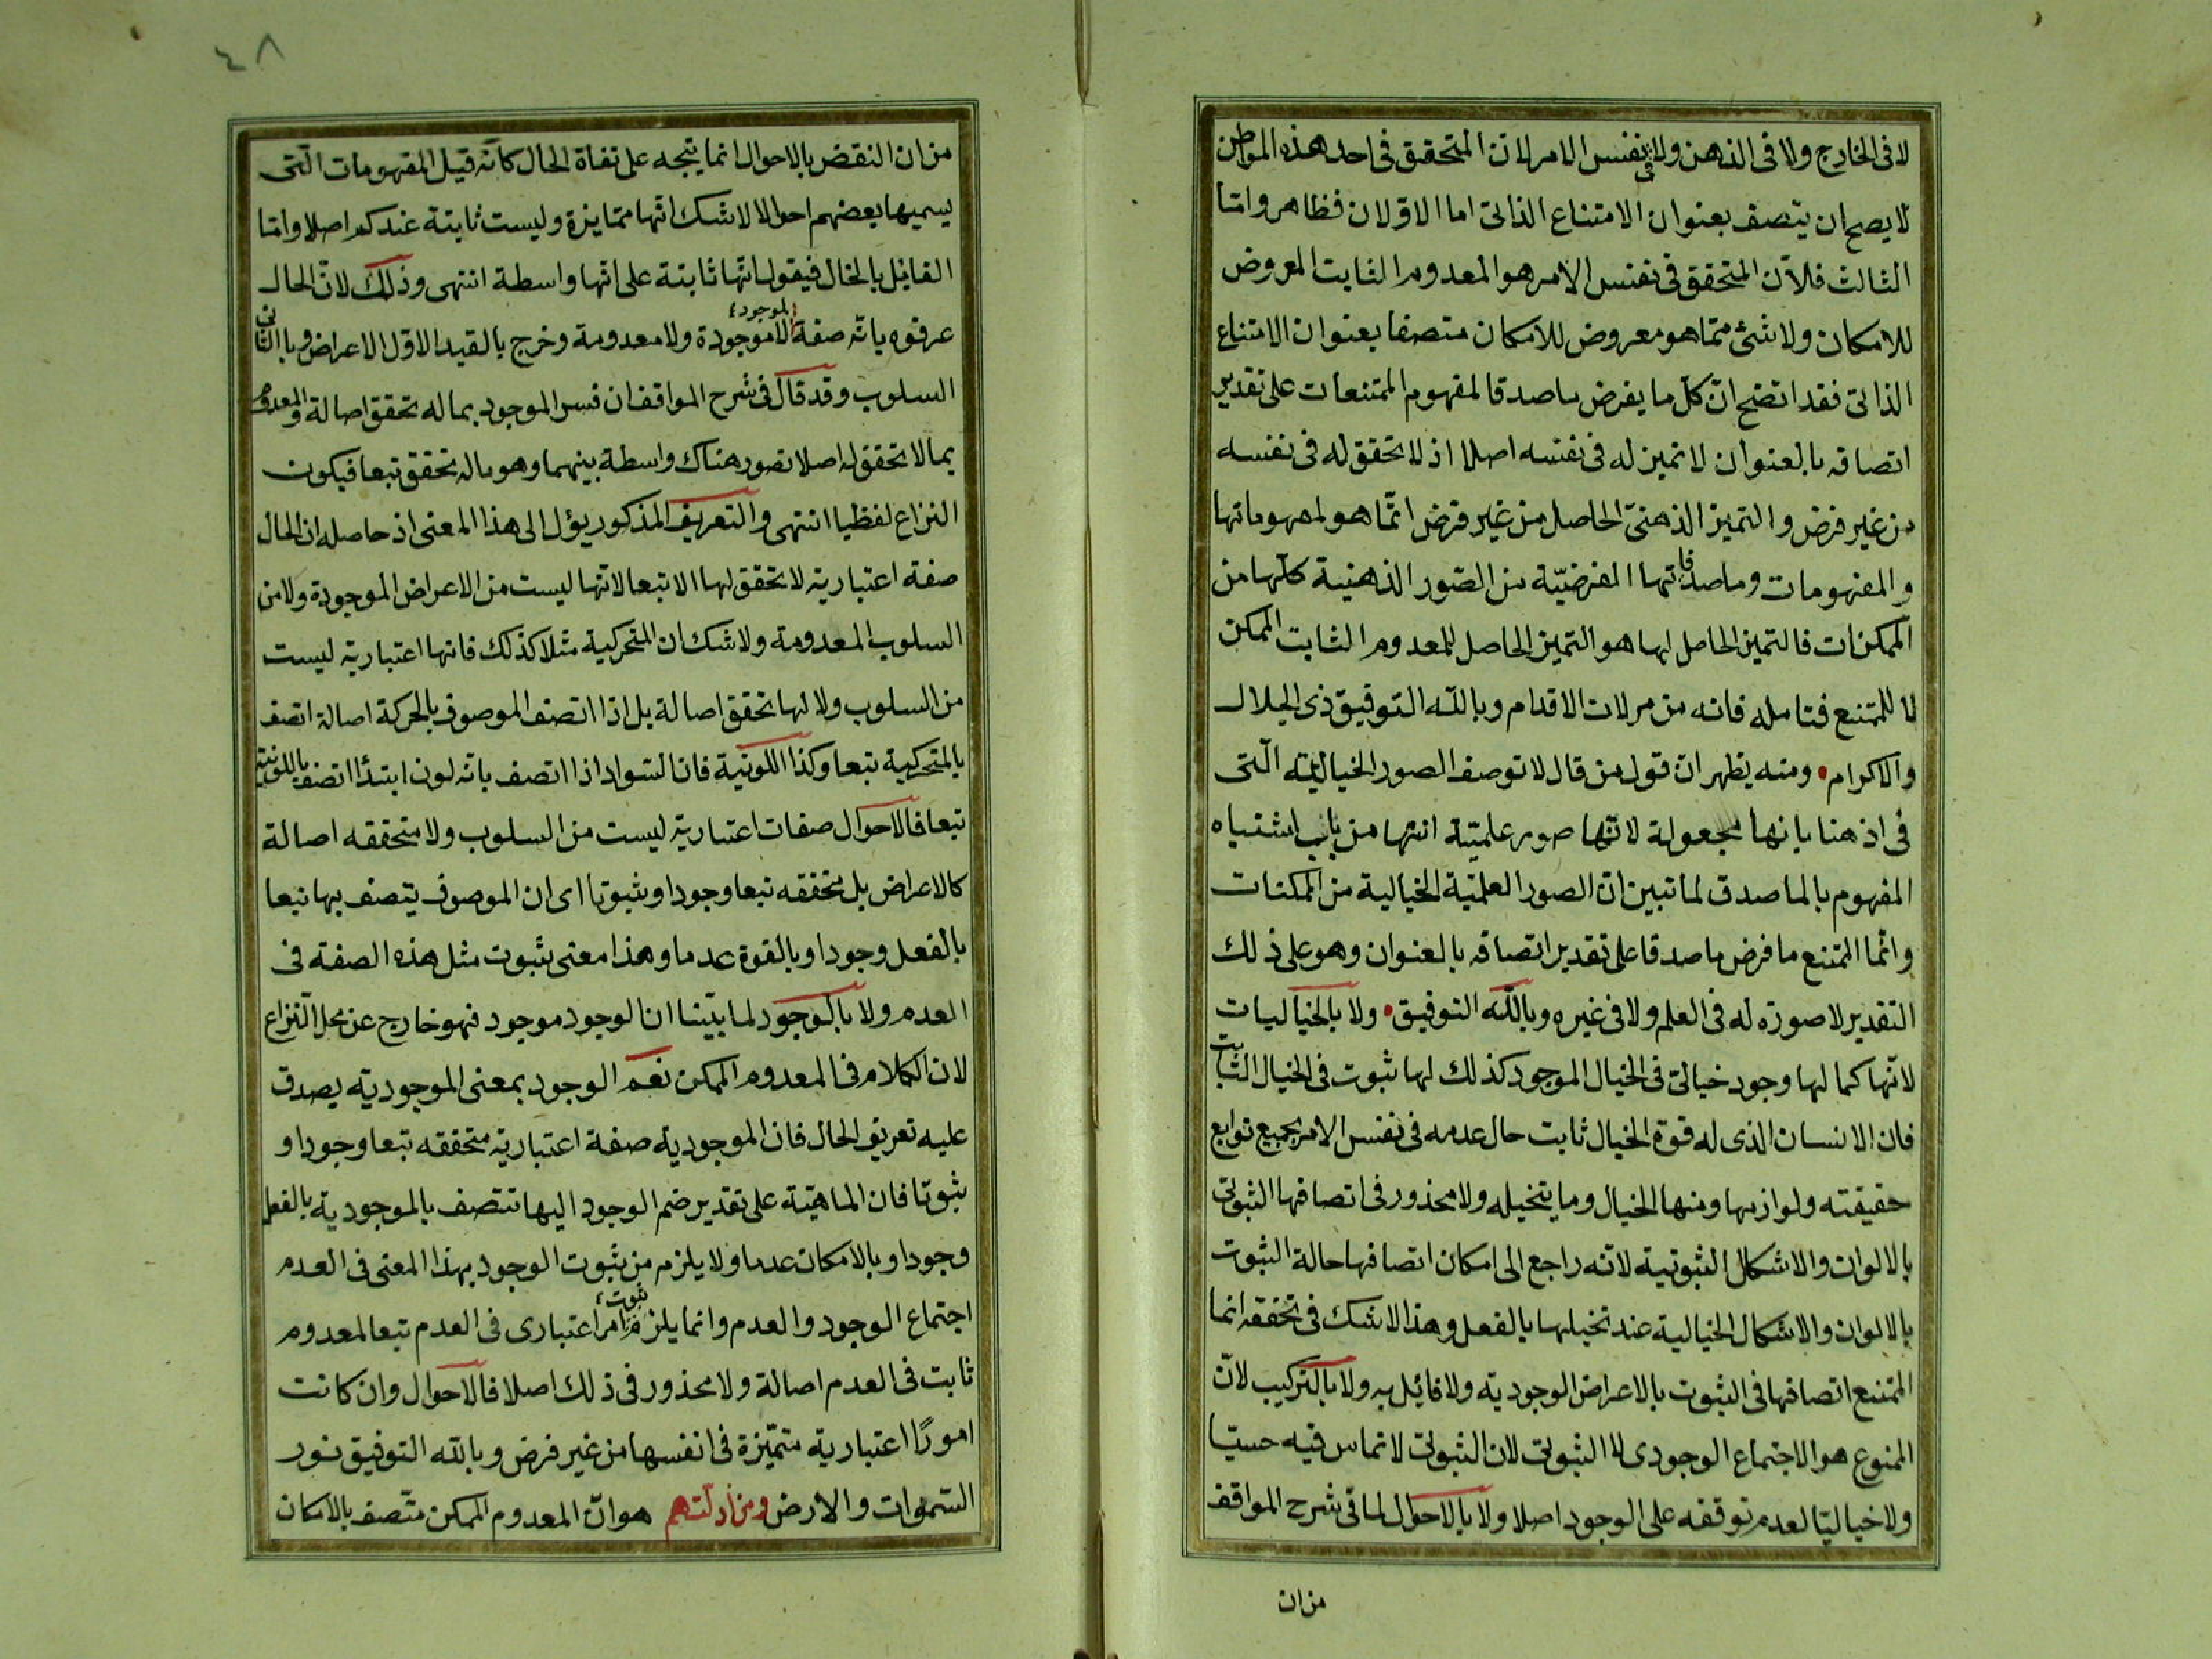 لا فى الخارج ولا فى الذهن ولا فى نفس الامر لان المتحقق فى احد هذه المواطن
لا يصح ان يتصف بعنوان الامتناع الذاتى اما الاولان فظاهر واما
الثالث فلان المتحقق فى نفس الامر هو المعدوم الثابت المعروض
للامكان ولا شئ مما هو معروض للامكان متصفا بعنوان الامتناع
الذاتى فقد اتضح ان كل ما يفرض ماصدقا لمفهوم الممتنعات على تقدير
اتصافه بالعنوان لا تميز له فى نفسه اصلا اذ لا تحقق له فى نفسه
من غير فرض والتميز الذهنى الحاصل من غير فرض انما هو لمفهوماتها
والمفهومات وماصدقاتها الفرضية من الصور الذهنية كلها من
الممكنات فالتميز الحاصل لها هو التميز الحاصل للمعدوم الثابت الممكن
لا للممتنع فتامله فانه من مزلات الاقدام وبالله التوفيق ذى الجلال
والاكرام • ومنه يظهر ان قول من قال لا توصف الصور الخيالية التى
فى اذهننا بانها مجعولة لانها صور علمية انتها من باب اشتباه
المفهوم بالماصدق لما تبين ان الصور العلمية الخيالية من الممكنات
وانما الممتنع ما فرض ماصدقا على تقدير اتصافه بالعنوان وهو على ذلك
التقدير لا صورة له فى العلم ولا فى غيره وبالله التوفيق • ولا بالخياليات
لانها كما لها وجود خيالى فى الخيال الموجود كذلك لها ثبوت فى الخيال الثابت
فان الانسان الذى له قوة الخيال ثابت حال عدمه فى نفس الامر بجميع توابع
حقيقته ولوازمها ومنها الخيال وما يتخيله ولا محذور فى اتصافها الثبوتى
بالالوان والاشكال الثبوتية لانه راجع الى امكان اتصافها حالة الثبوت
بالالوان والاشكال الخيالية عند تخيلها بالفعل وهذا لا شك فى تحققه انما
الممتنع اتصافها فى الثبوت بالاعراض الوجودية ولا قائل به ولا بالتركيب لان
الممنوع هو الاجتماع الوجودى لا الثبوتى لان الثبوتى لا تماس فيه حسيا
ولا خياليا لعدم توقفه على الوجود اصلا ولا بالاحوال لما فى شرح المواقف
من ان
٤٨
من ان النقض بالاحوال انما يتجه على نفاة الحال كانه قيل المفهومات التى
يسميها بعضهم احوالا لا شك انها متمايزة وليست ثابتة عندكم اصلا واما
القائل بالحال فيقول انها ثابتة على انها واسطة انتهى وذلك لان الحال
عرفوه بانه صفة الموجود لا موجودة ولا معدومة وخرج بالقيد الاول الاعراض وبالثانى
السلوب وقد قال فى شرح المواقف ان فسر الموجود بماله تحقق اصالة والمعدوم
بما لا تحقق له اصلا تصور هناك واسطة بينهما وهو ماله تحقق تبعا فيكون
النزاع لفظيا انتهى والتعريف المذكور يؤل الى هذا المعنى اذ حاصله ان الحال
صفة اعتبارية لا تحقق لها الا تبعا لانها ليست من الاعراض الموجودة ولا من
السلوب المعدومة ولا شك ان المتحركية مثلا كذلك فانها اعتبارية ليست
من السلوب ولا لها تحقق اصالة بل اذا اتصف الموصوف بالحركة اصالة اتصف
بالمتحركية تبعا وكذا اللونية فان السواد اذا اتصف بانه لون ابتدأ اتصف باللونية
تبعا فالاحوال صفات اعتبارية ليست من السلوب ولا متحققه اصالة
كالاعراض بل متحققه تبعا وجودا وثبوتا اى ان الموصوف يتصف بها تبعا
بالفعل وجودا وبالقوة عدما وهذا معنى ثبوت مثل هذه الصفة فى
العدم ولا بالوجود لما بيّنا ان الوجود موجود فهو خارج عن محل النزاع
لان الكلام فى المعدوم الممكن نعم الوجود بمعنى الموجودية يصدق
عليه تعريف الحال فان الموجودية صفة اعتبارية متحققه تبعا وجودا و
ثبوتا فان الماهية على تقدير ضم الوجود اليها تتصف بالموجودية بالفعل
وجودا وبالامكان عدما ولا يلزم من ثبوت الوجود بهذا المعنى فى العدم
اجتماع الوجود والعدم وانما يلزم ثبوت امر اعتبارى فى العدم تبعا لمعدوم
ثابت فى العدم اصالة ولا محذور فى ذلك اصلا فالاحوال وان كانت
امورًا اعتبارية متميّزة فى انفسها من غير فرض وبالله التوفيق نور
السموات والارض ومن ادلتهم هو ان المعدوم الممكن متصف بالامكان